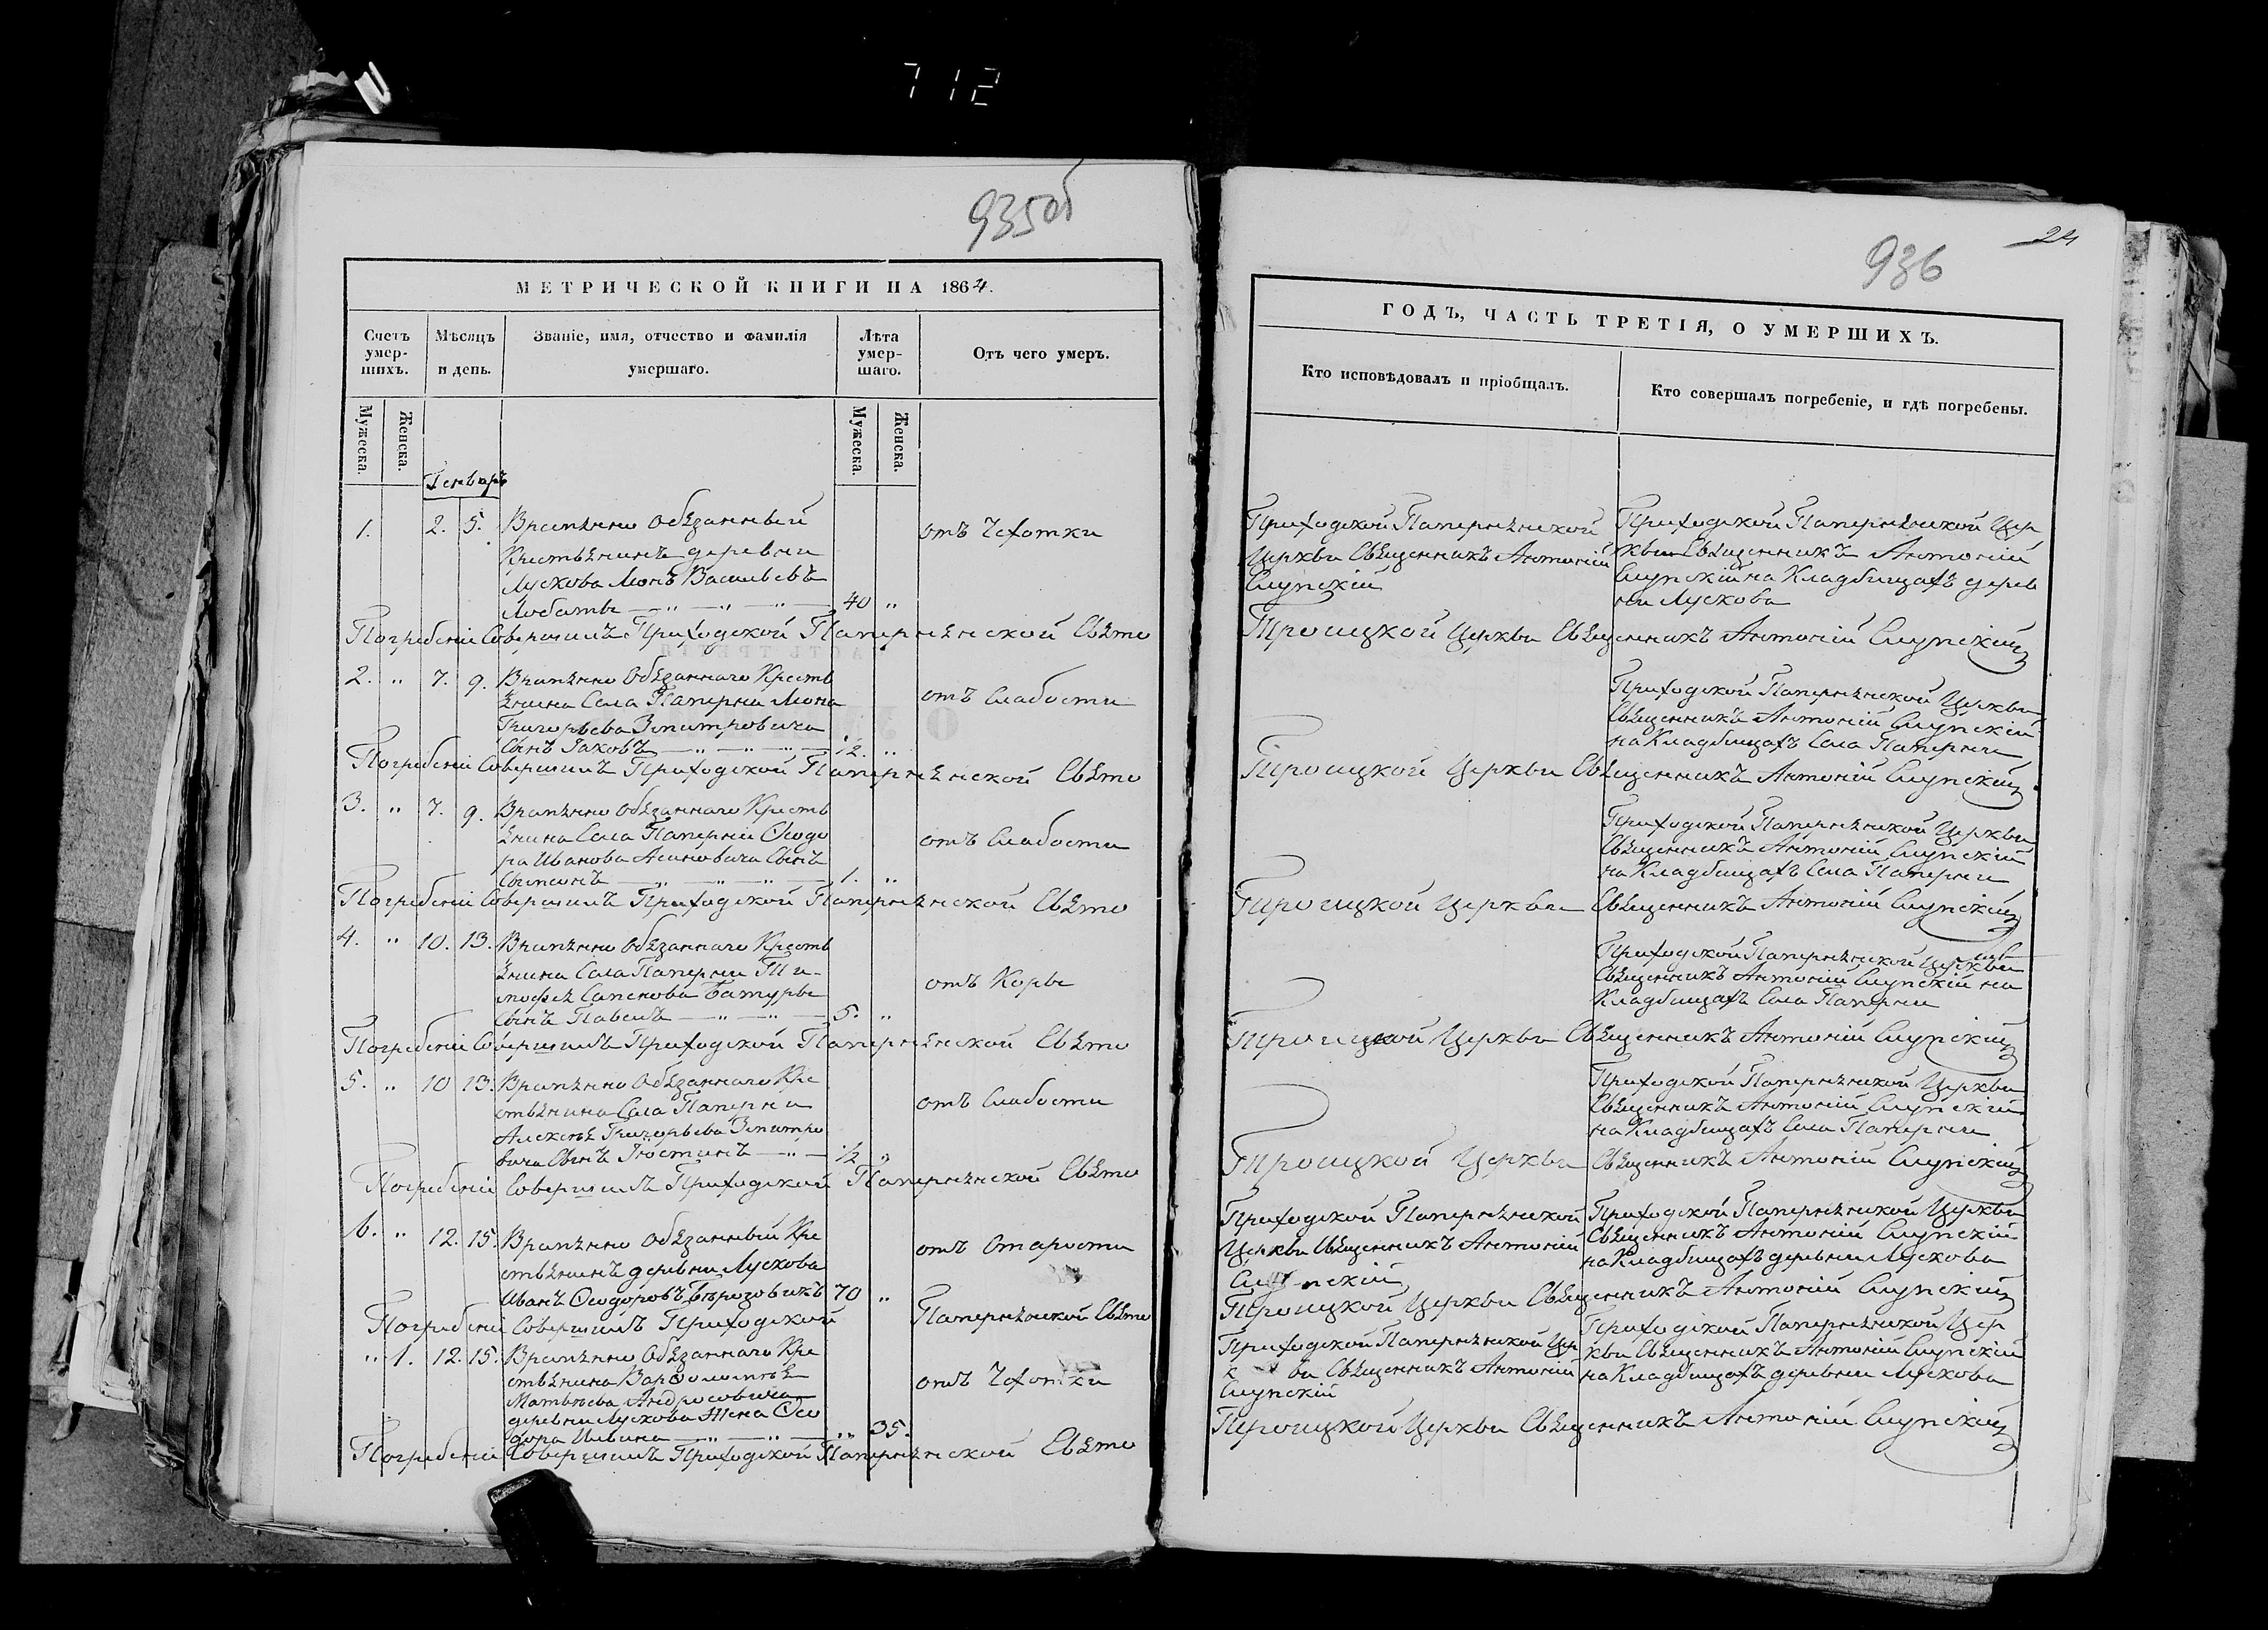 712
935об
МЕТРИЧЕСКОЙ КНИГИ НА 1864.
Счетъ умер-шихъ.
Мѣсяцъ и день.
Званіе, имя, отчество и фамилія умершаго.
Лѣта умер-шаго.
Отъ чего умеръ.
Мужеска.
Женска.
Мужеска.
Женска.
Генварь
1. 2. 5. Временно Обязанный
Крестьянинъ деревни
отъ Чехотки
Лускова Леонъ Васильевъ
Лобачъ 40 „
Погребеніе Совершилъ Приходской Папернянской Свято
2. „ 7. 9. Временно Обязаннаго Кресть
янина Села Паперни Леона
отъ Слабости
Григорьева Змитровича
Сынъ Іаковъ 1/2. „
Погребеніе Совершилъ Приходской Папернянской Свято
3. „ 7. 9. Временно Обязаннаго Кресть
янина Села Паперни Ѳеодо
отъ Слабости
ра Иванова Асиновича Сынъ
Сѵмеонъ 1. „
Погребеніе Совершилъ Приходской Папернянской Свято
4. „ 10. 13. Временно Обязаннаго Кресть
янина Села Паперни Ти-
отъ Корь
мофея Семенова Батуры
Сынъ Павелъ 5. „
Погребеніе Совершилъ Приходской Папернянской Свято
5. „ 10 13. Временно Обязаннаго Кре
стьянина Села Паперни
отъ Слабости
Алексѣя Григорьева Змитро
вича Сынъ Іюстинъ 1/2 „
Погребеніе Совершилъ Приходской Папернянской Свято
6. „ 12. 15. Временно Обязанный Кре
стьянинъ деревни Лускова
отъ Старости
Иванъ Ѳеодоровъ Березовикъ 70 „
Погребеніе Совершилъ Приходской Папернянской Свято
„ 1. 12. 15. Временно Обязаннаго Кре
стьянина Варѳоломѣя
отъ Чехотки
Матвѣева Андросовича
деревни Лускова Жена Ѳео
дора Ильина „ 35.
Погребеніе Совершилъ Приходской Папернянской Свято
24
936
ГОДЪ, ЧАСТЬ ТРЕТІЯ, О УМЕРШИХЪ.
Кто исповѣдовалъ и пріобщалъ.
Кто совершалъ погребеніе, и гдѣ погребены.
Приходской Папернянской
Церкви Священникъ Антоній
Слупскій
Приходской Папернянской Цер
кви Священникъ Антоній
Слупскій на Кладбищахъ дерев
ни Лускова
Троицкой Церкви Священникъ Антоній Слупскій
Приходской Папернянской Церкви
Священникъ Антоній Слупскій
на Кладбищахъ Села Паперни
Троицкой Церкви Священникъ Антоній Слупскій
Приходской Папернянской Церкви
Священникъ Антоній Слупскій
на Кладбищахъ Села Паперни
Троицкой Церкви Священникъ Антоній Слупскій
Приходской Папернянской Церкви
Священникъ Антоній Слупскій на
Кладбищахъ Села Паперни
Троицкой Церкви Священникъ Антоній Слупскій
Приходской Папернянской Церкви
Священникъ Антоній Слупскій
на Кладбищахъ Села Паперни
Троицкой Церкви Священникъ Антоній Слупскій
Приходской Папернянской
Церкви Священникъ Антоній
Слупскій
Приходской Папернянской Церкви
Священникъ Антоній Слупскій
на Кладбищахъ деревни Лускова
Троицкой Церкви Священникъ Антоній Слупскій
Приходской Папернянской Цер
к ви Священникъ Антоній
Слупскій
Приходской Папернянской Цер
кви Священникъ Антоній Слупскій
на Кладбищахъ деревни Лускова
Троицкой Церкви Священникъ Антоній Слупскій